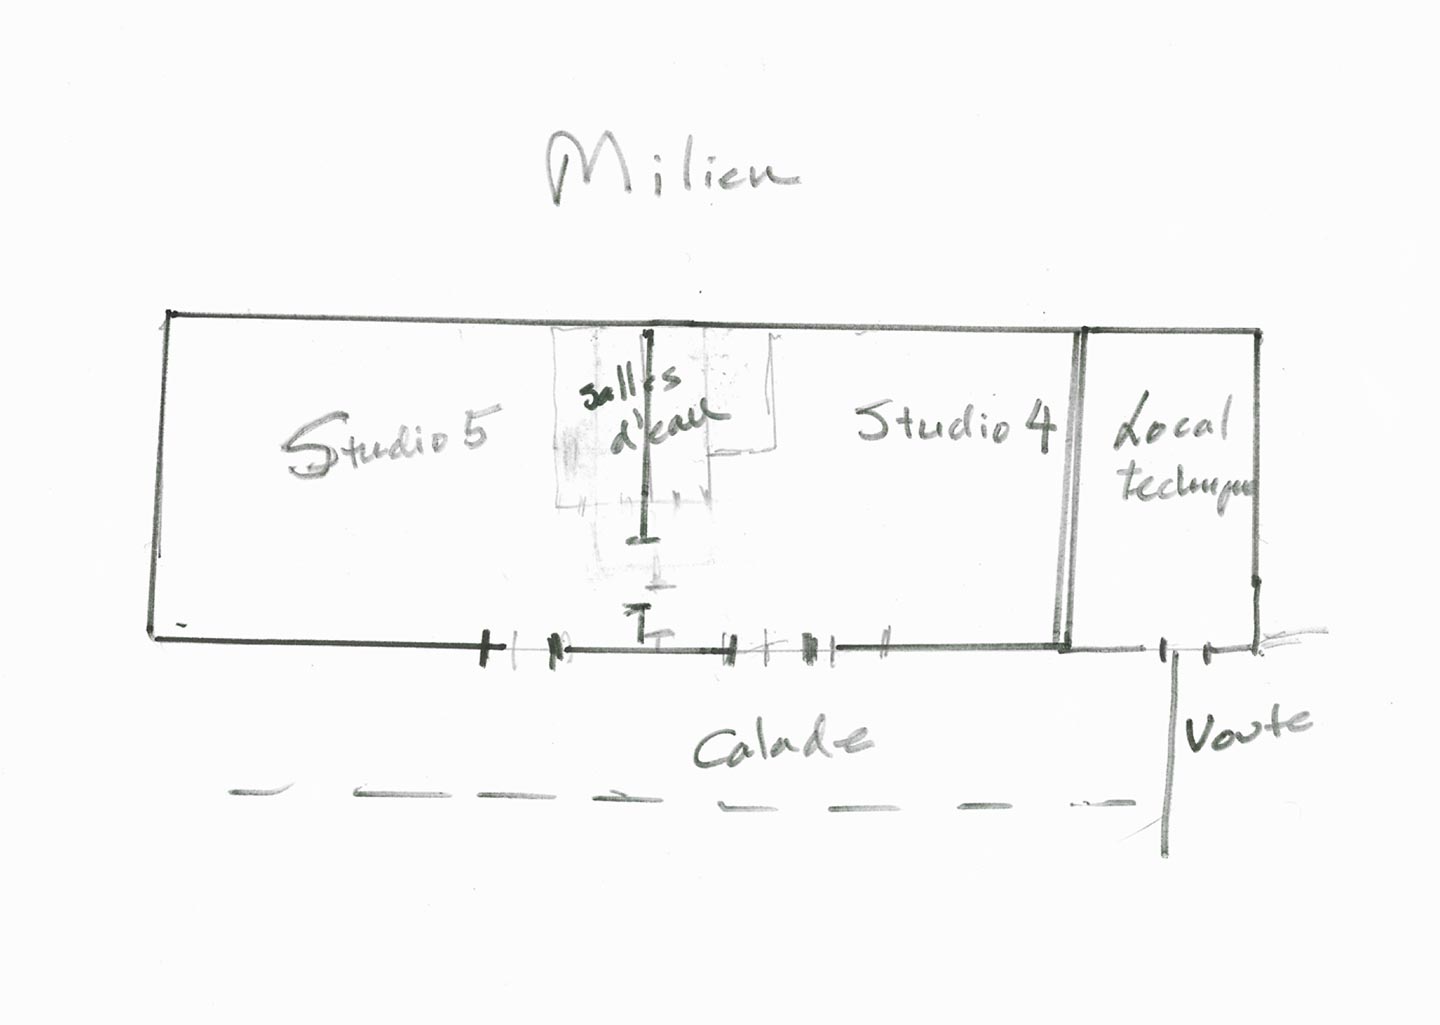 Milieu
Studio 5
salles
d'eau
Studio 4
Local
technique
Calade
Voute